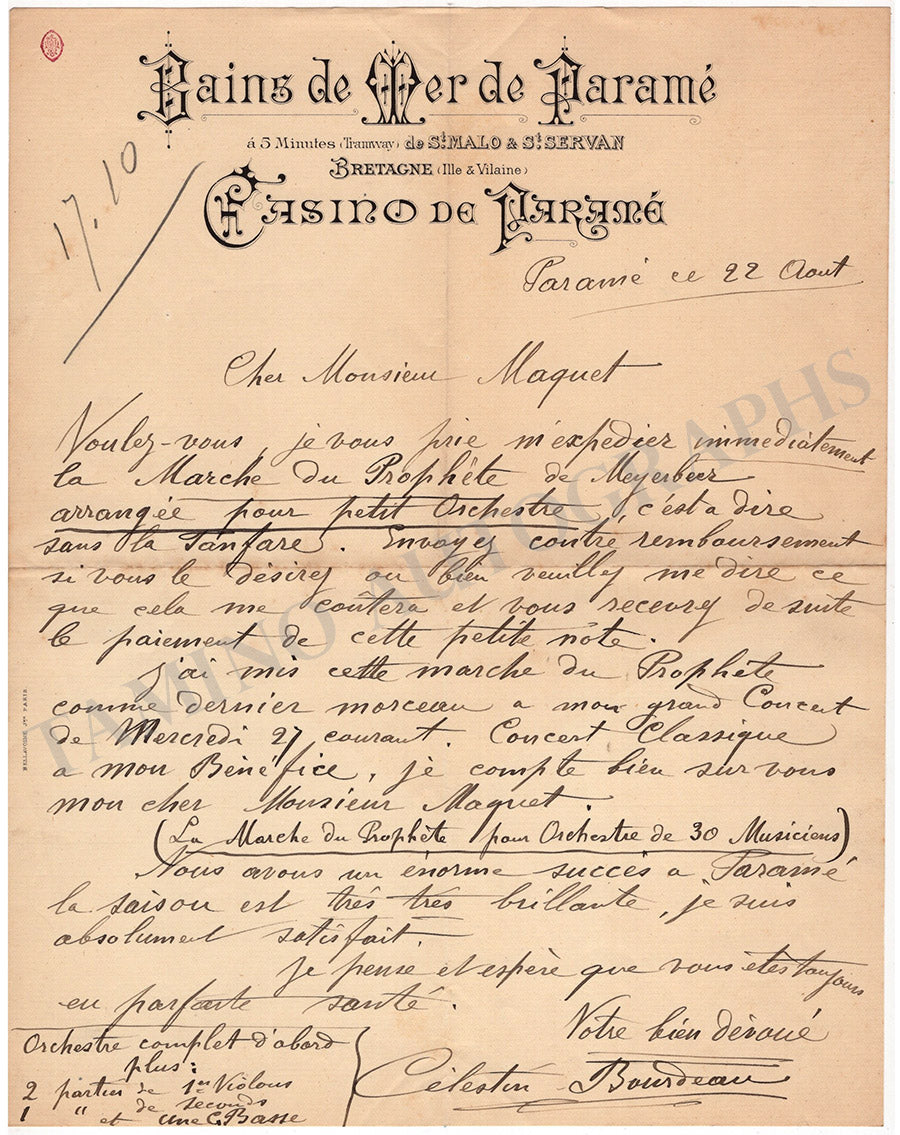 Bains de Mer de Paramé
á 5 Minutes (Tramway) de St. MALO & St. SERVAN
BRETAGNE (Ille & Vilaine)
CASINO DE PARAMÉ
17.10
Paramé ce 22 Aout
Cher Monsieur Maquet
Voulez-vous, je vous prie m'expedier immediatement
la Marche du Prophête de Meyerbeer
arrangée pour petit Orchestre, c'est a dire
sans la Fanfare. Envoyez contre remboursement
si vous le désirez ou bien veuillez me dire ce
que cela me coûtera et vous recevrez de suite
le paiement de cette petite note.
J'ai mis cette marche du Prophête
comme dernier morceau a mon grand Concert
de Mercredi 27 courant. Concert Classique
a mon Bénéfice, je compte bien sur vous
mon cher Monsieur Maquet.
(La Marche du Prophête pour Orchestre de 30 Musiciens)
Nous avons un énorme succès a Paramé
la saison est trés trés brillante, je suis
absolument satisfait.
Je pense et espère que vous êtes toujours
en parfaite santé.
Votre bien dévoué
Célestin Bourdeau
Orchestre complet d'abord
plus:
2 parties de 1er Violons
1 " de seconds
et une C. Basse
BELLAVOINE Jne PARIS
TAMINO AUTOGRAPHS